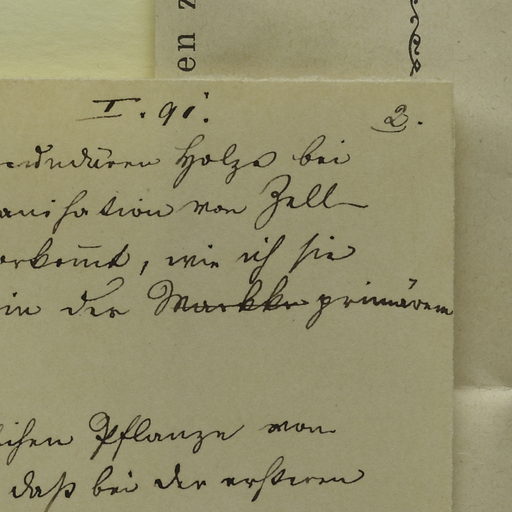 en z
I. 91. 2.
cundären Holze bei
anisation von Zell
orkom̅t, wie ich sie
in der Markke primären
ichen Pflanze von
daß bei der ersteren